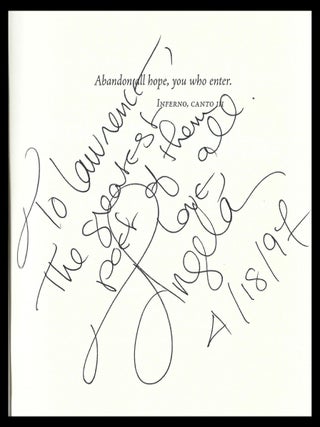 Abandon all hope, you who enter.
INFERNO, CANTO III
To Lawrence,
The greatest
poet of them all.
Love,
Angela
4/18/97